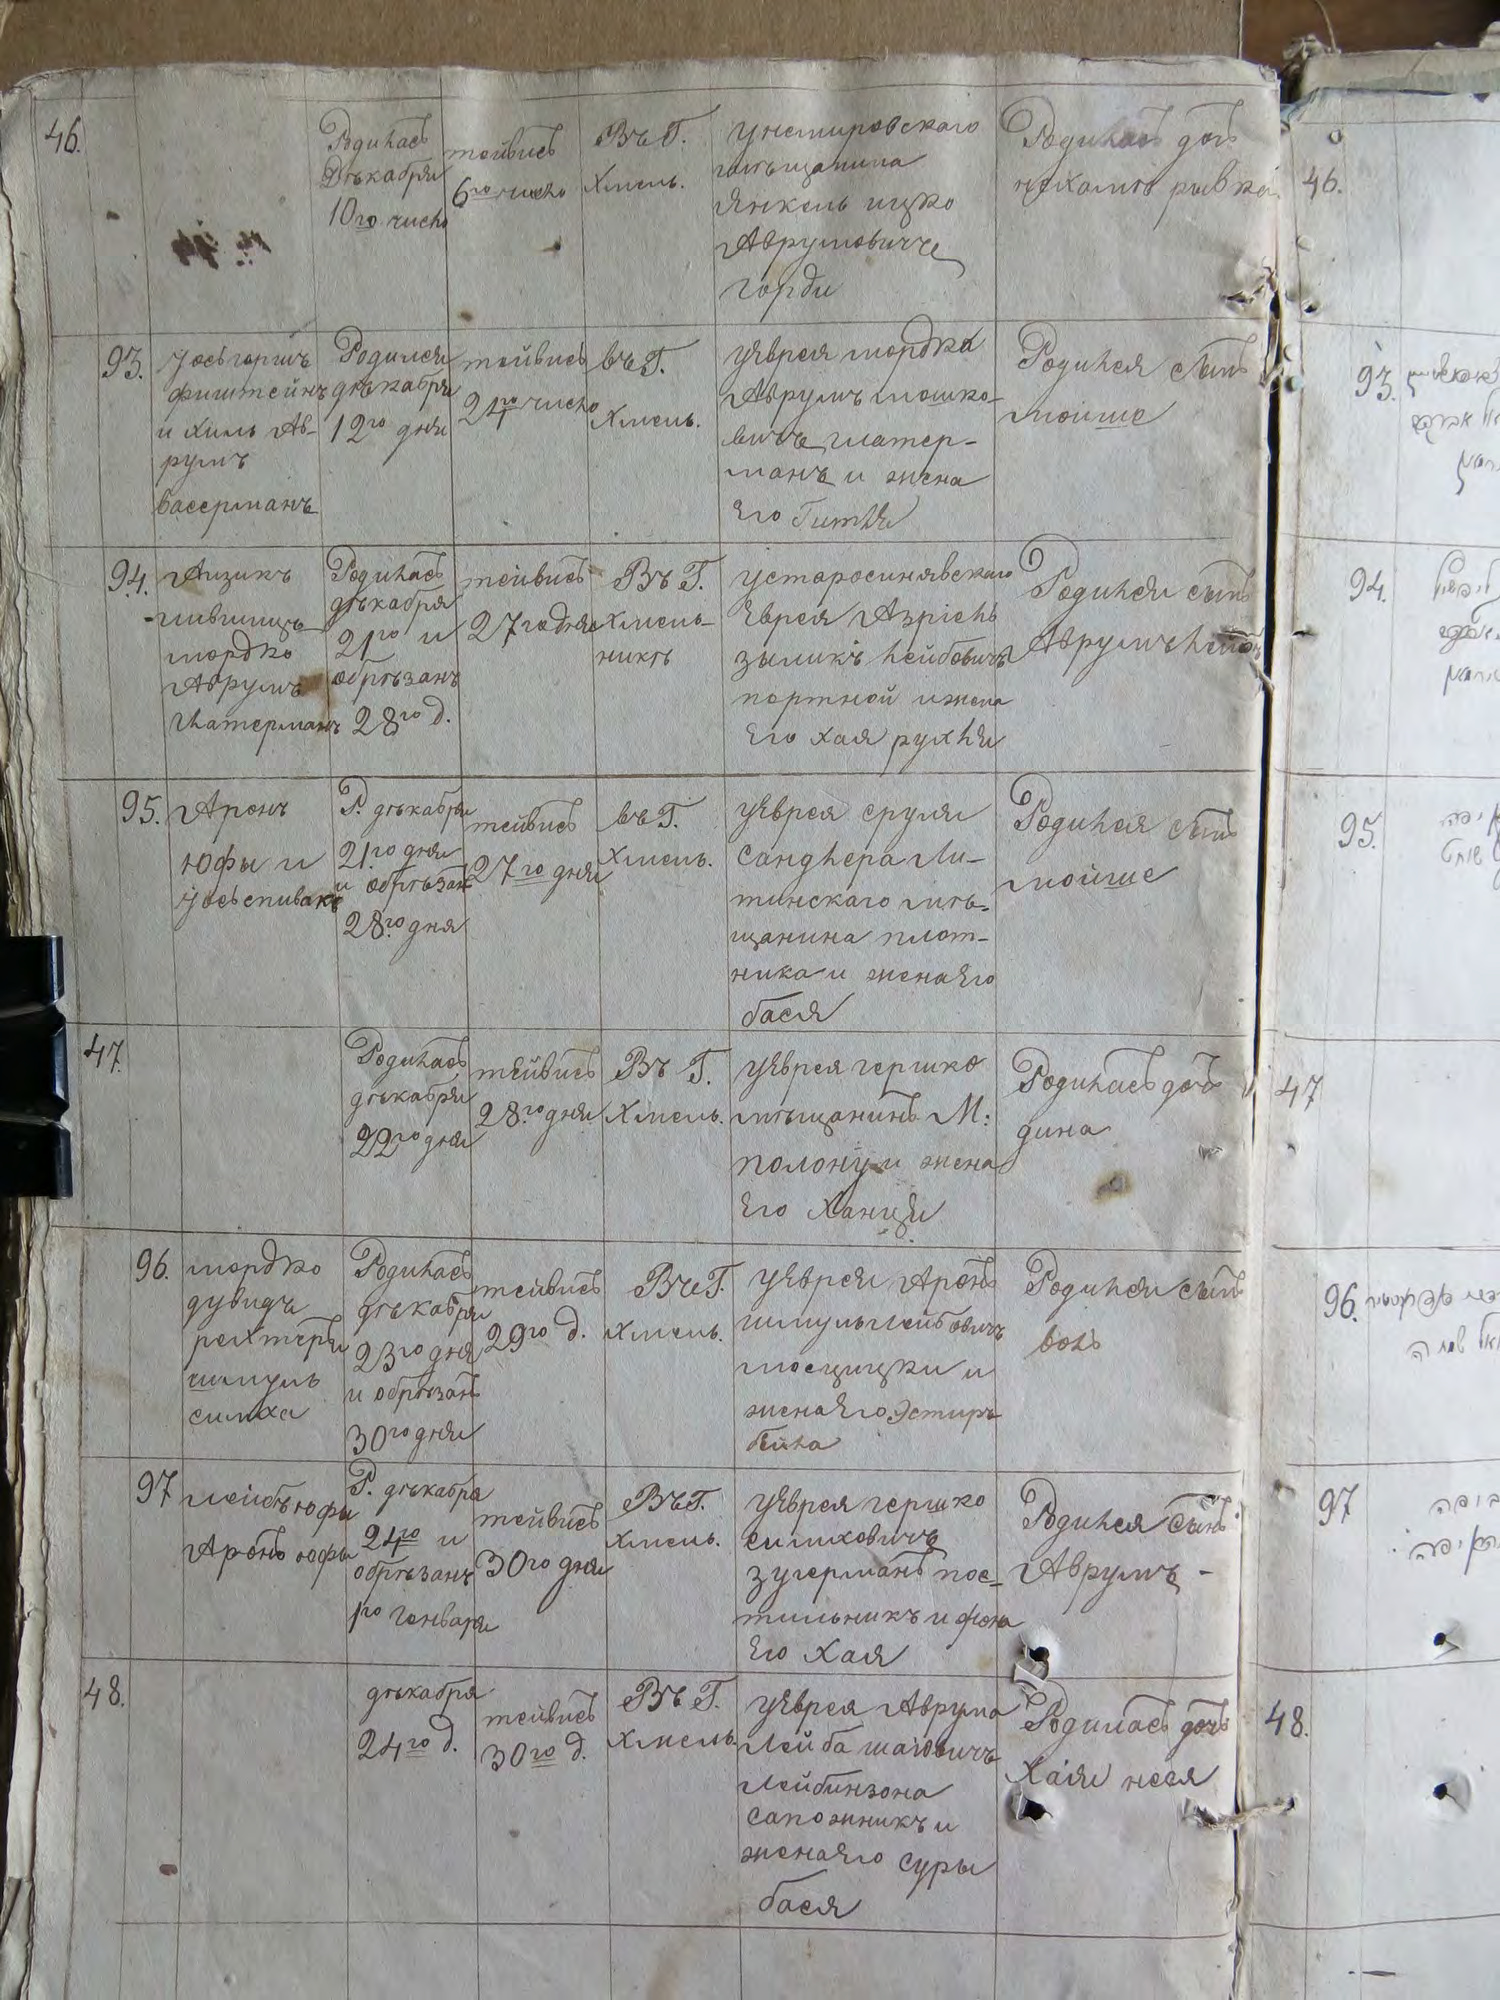 46.
Родилась
Декабря
10го число
тейвисъ
6го число
Въ Г.
Хмель.
унемировскаго
мѣщанина
Янкель ицко
Аврумовиче
горди
Родилась дочь
нехама ривка
46.
93.
Іось гершъ
финштейнъ
и хиль Ав-
румъ
васерманъ
Родился
дѣкабря
12го дня
тейвисъ
24го число
въ Г.
Хмель.
уеврея мордка
Аврумъ мошко-
вичъ глатер-
манъ и жена
Его Гитля
Родился сынъ
мойше
93.
94.
Аизикъ
лившицъ
мордко
Аврумъ
глатерманъ
Родилась
дѣкабря
21го и
обрѣзанъ
28го д.
тейвисъ
27го дня
Въ Г.
Хмель-
никѣ
устаросинявскаго
Еврея Азріель
зыликъ лейбовичъ
портной и жена
Его хая рухля
Родился сынъ
Аврумъ лейбъ
94.
95.
Аронъ
юфы и
Іось спивакъ
Р. дѣкабря
21го дня
и обрѣзан
28го дня
тейвисъ
27го дня
въ Г.
Хмель.
уЕврея сруля
сандлера Ли-
тинскаго мѣ-
щанина плот-
ника и жена Его
бася
Родился сынъ
мойше
95.
47.
Родилась
дѣкабря
22го дня
тейвисъ
28го дня
Въ Г.
Хмель.
уЕврея гершко
мѣщанинъ М:
полонц и жена
Его Ханця
Родилась дочь
дина
47
96.
мордко
дувидъ
рехтеръ
шмуль
симха
Родилась
дѣкабря
23го дня
и обрѣзанъ
30го дня
тейвисъ
29го д.
Въ Г.
Хмель.
уЕврея Аронъ
шмуль лейбовичъ
мосицки и
жена Его Эстиръ
бейла
Родился сынъ
волъ
96.
97
лейбъ юфы
Аронъ юфы
Р. дѣкабря
24го и
обрѣзанъ
1го генваря
тейвисъ
30го дня
Въ Г.
Хмель.
уЕврея гершко
симховичъ
зугерманъ пос-
тильникъ и жона
Его Хая
Родился сынъ
Аврумъ -
97
48.
дѣкабря
24го д.
тейвисъ
30го д.
Въ Г.
Хмель.
уЕврея Аврума
Лейба шаювичъ
Лейбинзона
сапожникъ и
жена Его суры
бася
Родилась дочь
Хаия неся
48.